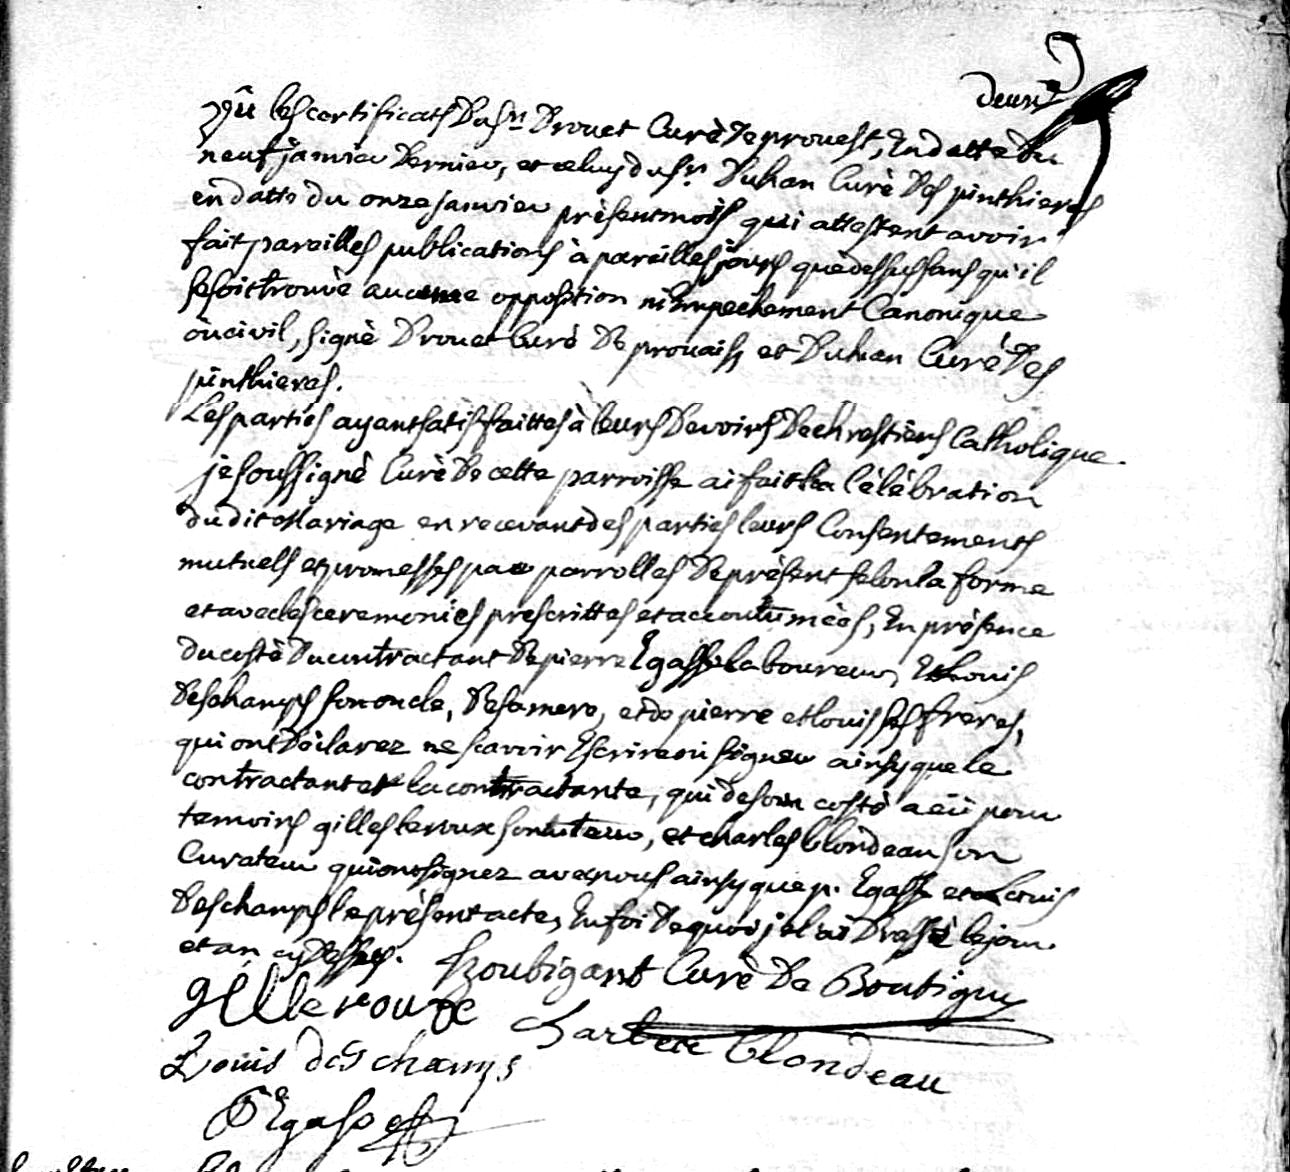 deux
Vû les certificats du sr. Drouet Curè de prouest, En datte du
neuf janvier dernier, et celuy du sr. Duhan Curè des pinthieres
en datte du onze janvier prèsent mois qui attestent avoir
fait pareilles publications à pareilles jours que dessus sans qu'il
se soit trouvè aucune opposition ni Empechement Canonique
où civil, signè Drouet Curè De prouais, et Duhan Curè Des
pinthieres.
Les parties ayant satisfaittes à leurs Devoirs De chrestiens Catholique
je soussignè Curè De cette parroisse ai fait la Célèbration
du dit Mariage en recevant des parties leurs Consentements
mutuels et promesses par parrolles De prèsent selon la forme
et avec les ceremonies prescrittes et accoutumèes, En prèsence
du costè Du contractant De pierre Egasse laboureur, Et Louis
Deschamps son oncle, De sa mere, et de pierre et louis ses freres,
qui ont Dèclarez ne scavoir Escrire où signer ainsy que le
contractant et la contractante, qui de son costè a eü pour
temoins gilles leroux son tuteur, et charles blondeau son
Curateur qui ont signez avec nous ainsy que p. Egasse et Louis
Deschamps le prèsent acte, En foi De quoi je l'ai Dressè le jour
et an cy Dessus. Houbigant Curè De Boutigny
gille roux
charle blondeau
Louis deschamps
P Egasse